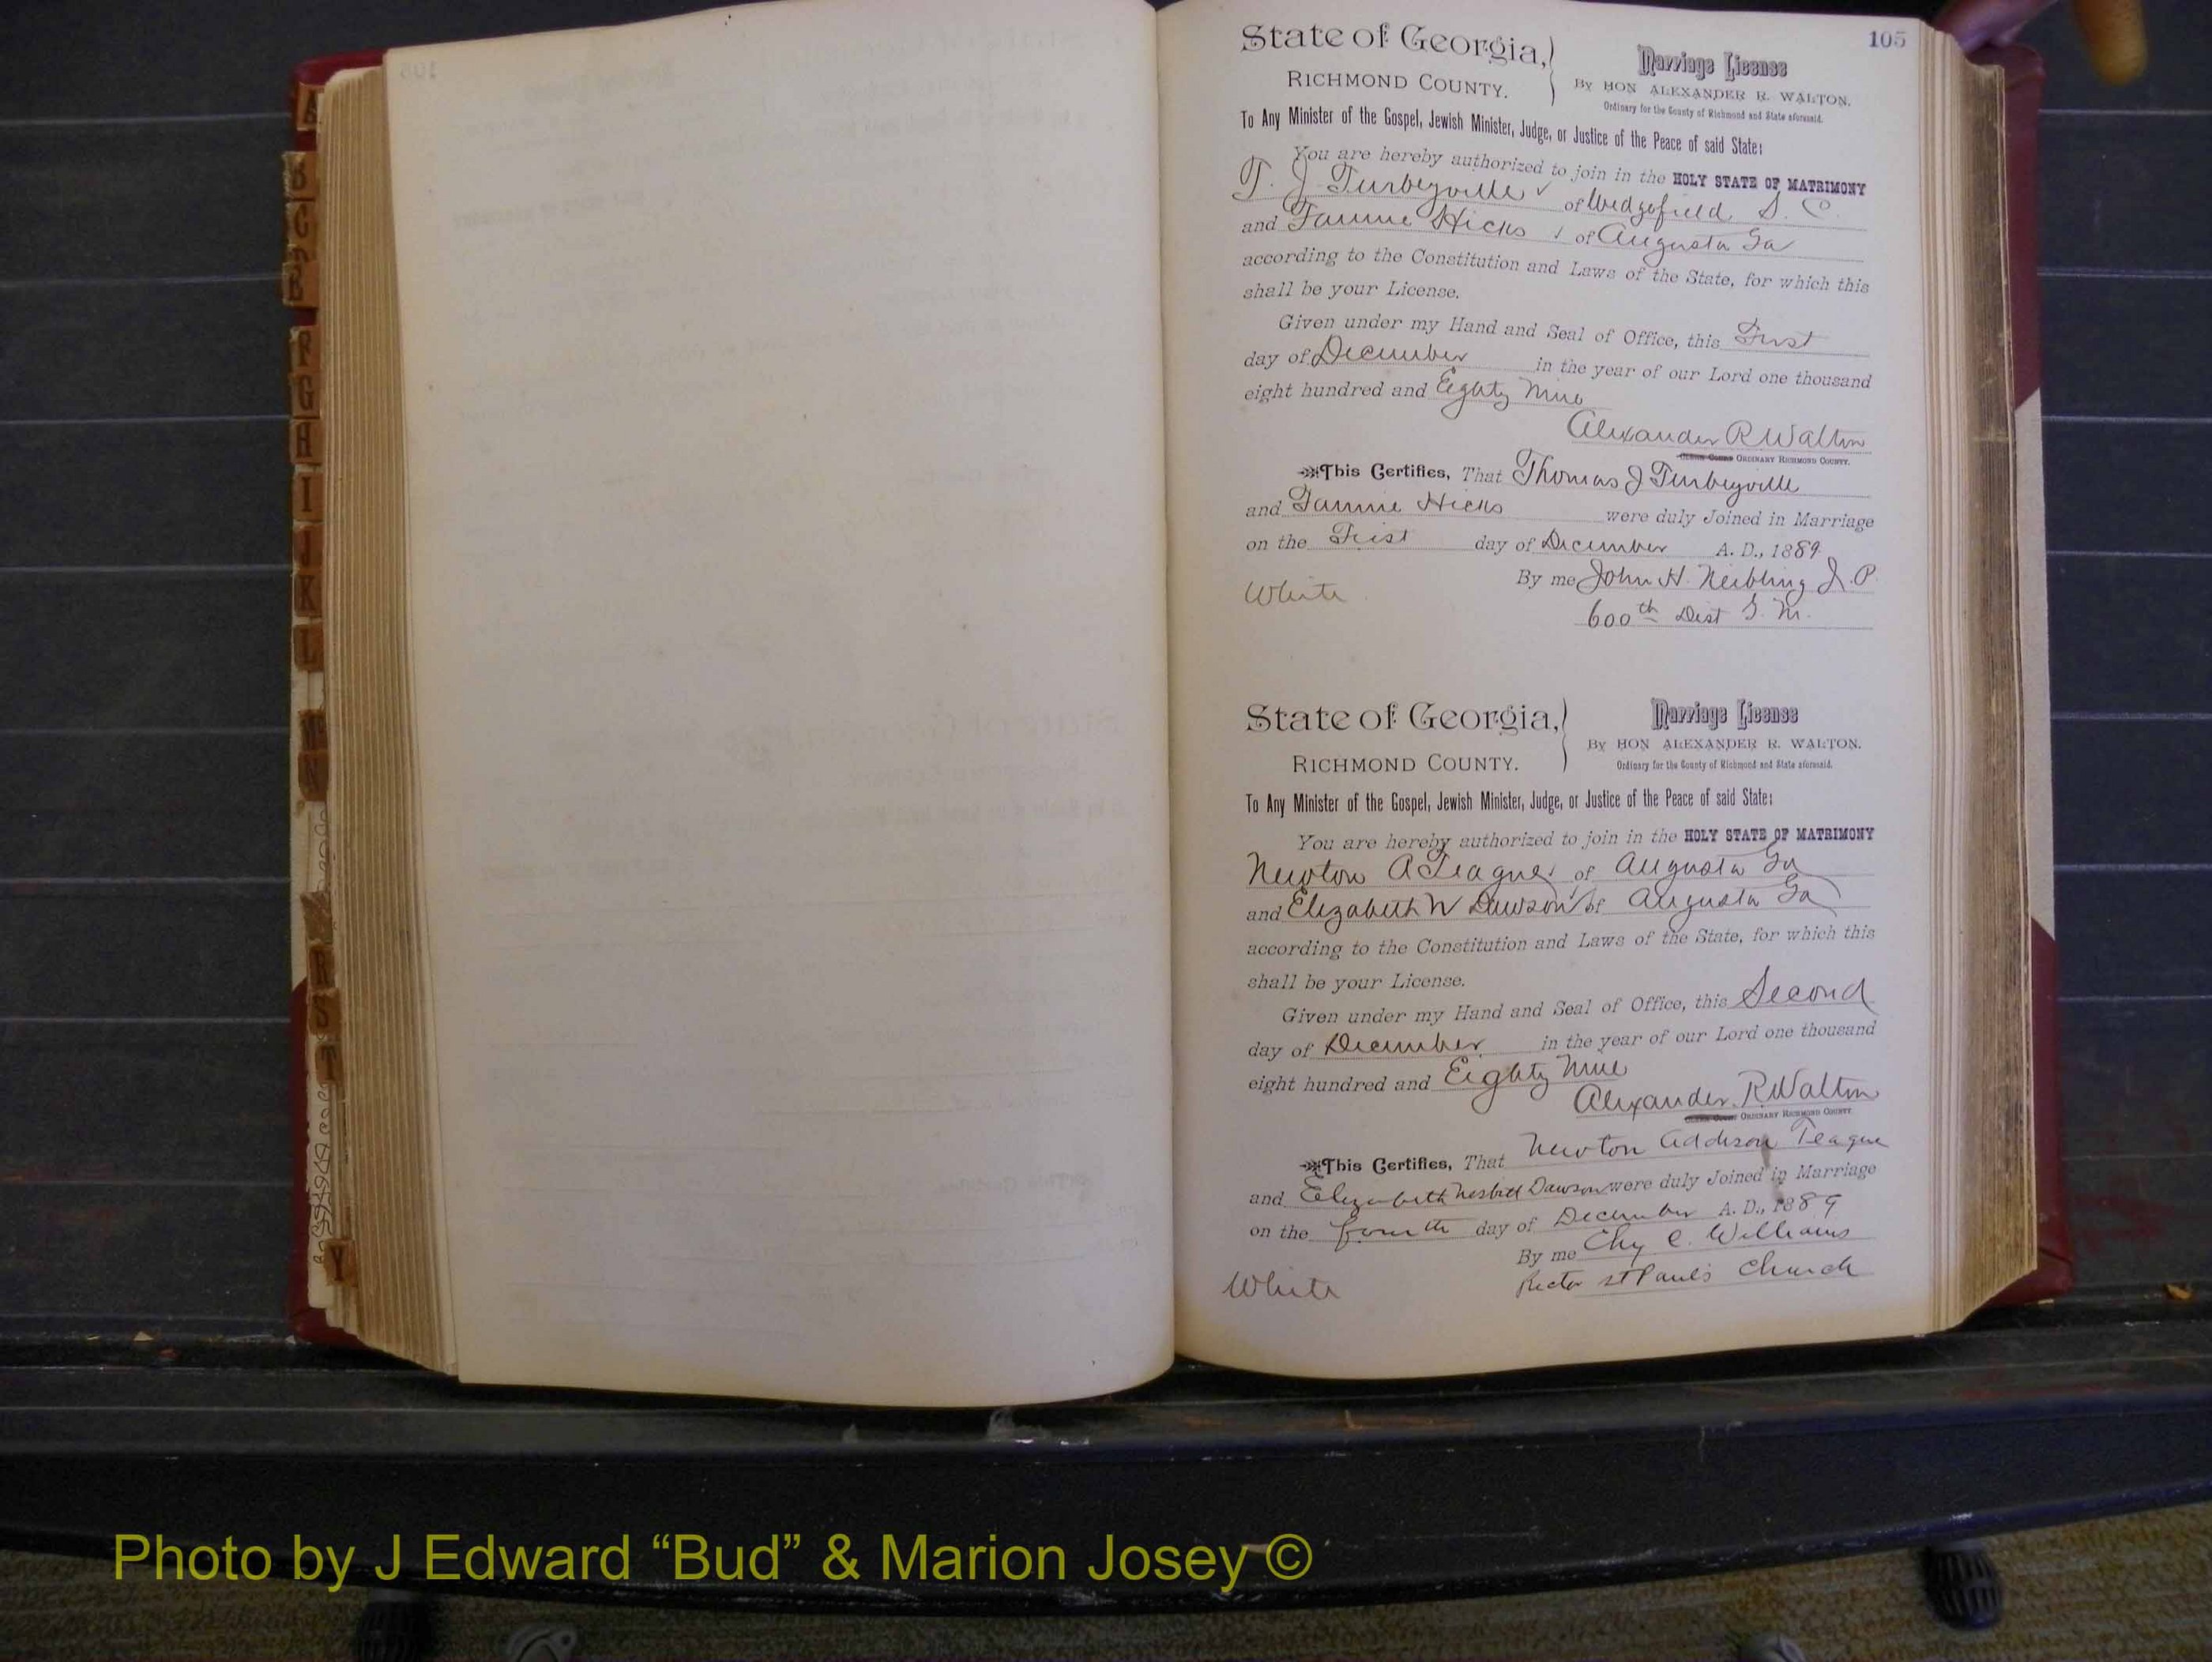 105
State of Georgia,
RICHMOND COUNTY.
Marriage License
By HON ALEXANDER R. WALTON,
Ordinary for the County of Richmond and State aforesaid.
To Any Minister of the Gospel, Jewish Minister, Judge, or Justice of the Peace of said State:
You are hereby authorized to join in the HOLY STATE OF MATRIMONY
T. J. Turbeyville of Wedgefield S. C.
and Fannie Hicks of Augusta Ga
according to the Constitution and Laws of the State, for which this
shall be your License.
Given under my Hand and Seal of Office, this First
day of December in the year of our Lord one thousand
eight hundred and Eighty Nine
Alexander R Walton
ORDINARY RICHMOND COUNTY.
This Certifies, That Thomas J Turbeyville
and Fannie Hicks were duly Joined in Marriage
on the First day of December A. D., 1889
By me John H. Neibling J. P.
White
600th Dist G. M.
State of Georgia,
RICHMOND COUNTY.
Marriage License
By HON ALEXANDER R. WALTON.
Ordinary for the County of Richmond and State aforesaid.
To Any Minister of the Gospel, Jewish Minister, Judge, or Justice of the Peace of said State:
You are hereby authorized to join in the HOLY STATE OF MATRIMONY
Newton A Teague of Augusta Ga
and Elizabeth N Dawson of Augusta Ga
according to the Constitution and Laws of the State, for which this
shall be your License.
Given under my Hand and Seal of Office, this Second
day of December in the year of our Lord one thousand
eight hundred and Eighty Nine
Alexander R Walton
ORDINARY RICHMOND COUNTY
This Certifies, That Newton Addison Teague
and Elizabeth Nesbitt Dawson were duly Joined in Marriage
on the fourth day of December A. D., 1889
By me Chy C. Williams
White
Rector St Paul's Church
B
C
G
H
I
J
K
L
N
R
S
T
Y
Photo by J Edward “Bud” & Marion Josey ©